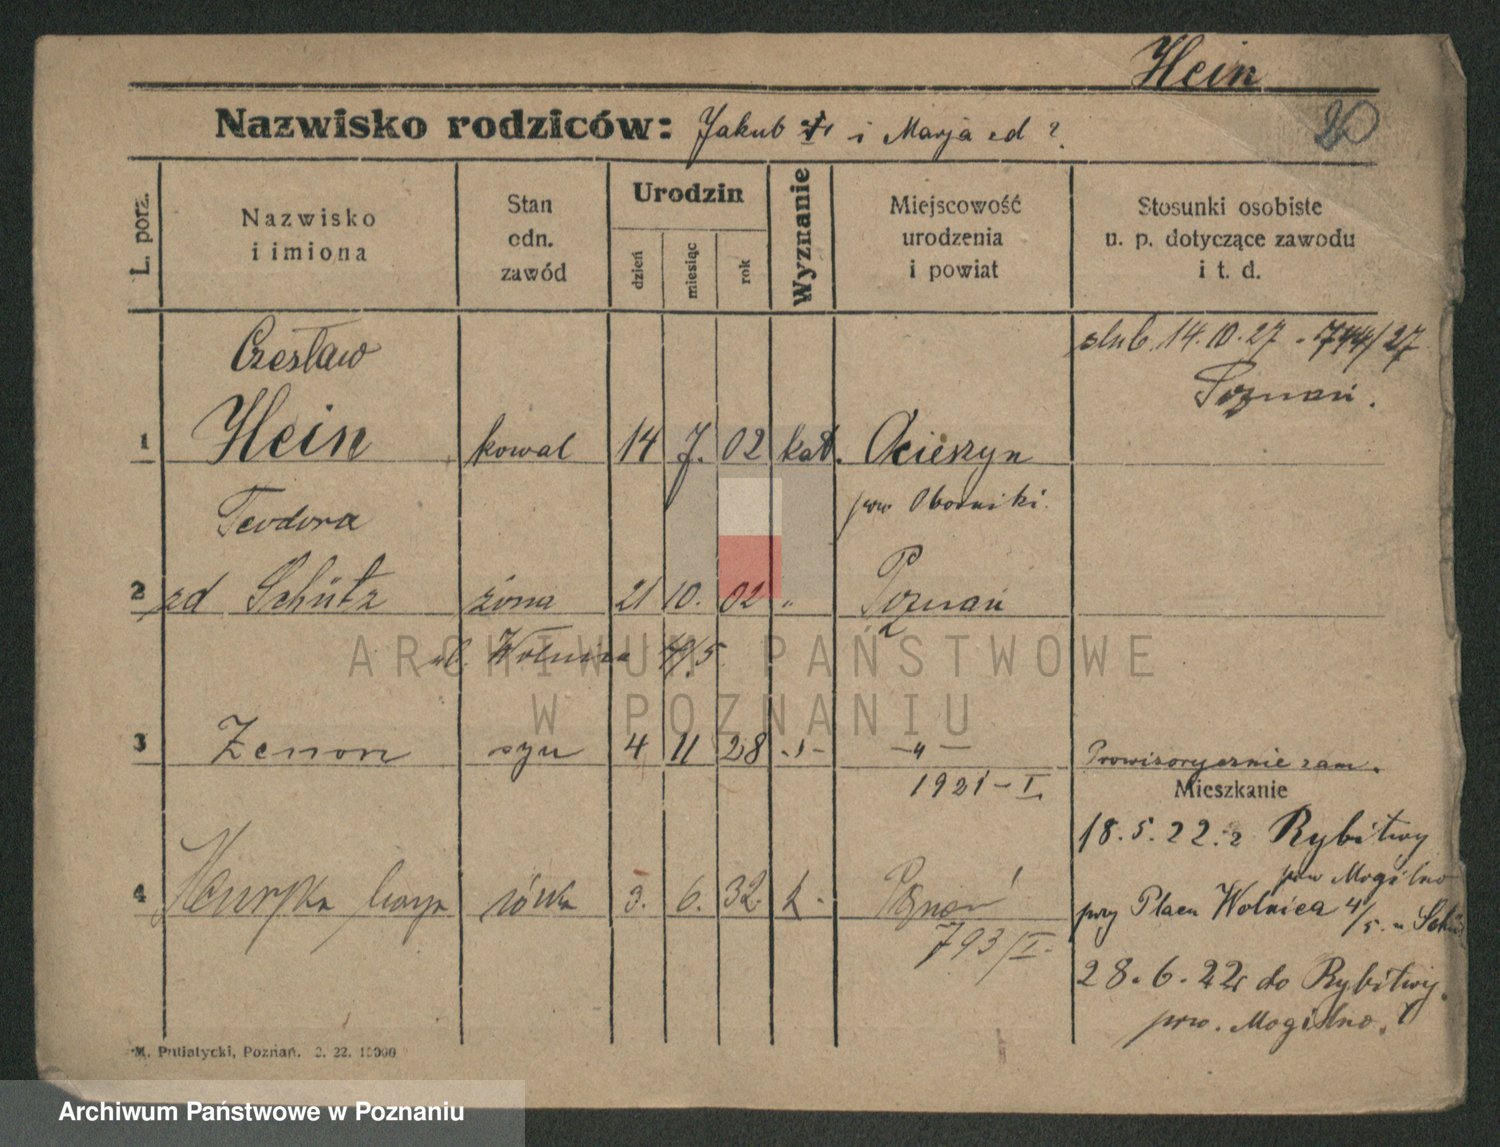 Hein
20
Nazwisko rodziców: Jakub i Marja zd ?
L. porz.
Nazwisko i imiona
Stan odn. zawód
Urodzin
dzień
miesiąc
rok
Wyznanie
Miejscowość urodzenia i powiat
Stosunki osobiste u. p. dotyczące zawodu i t. d.
Czesław
ślub. 14.10.27 - 744/27
Poznań.
1 Hein kowal 14 7. 02 kat. Ocieszyn
pow. Oborniki.
Teodora
2 zd Schütz żona 21 10. 02 " Poznań
ul. Wolnica 4/5
3 Zenon syn 4 11 28 -"- -"-
1921-I.
Prowizorycznie zam.
Mieszkanie
18.5.22. z Rybitwy
pow Mogilno
4 Marja córka 3. 6. 32 k. Poznań
793/I.
przy Placu Wolnica 4/5.
28.6.22 do Rybitwy.
pow. Mogilno.
M. Putiatycki, Poznań. 2. 22. 10000
ARCHIWUM PAŃSTWOWE
W POZNANIU
Archiwum Państwowe w Poznaniu